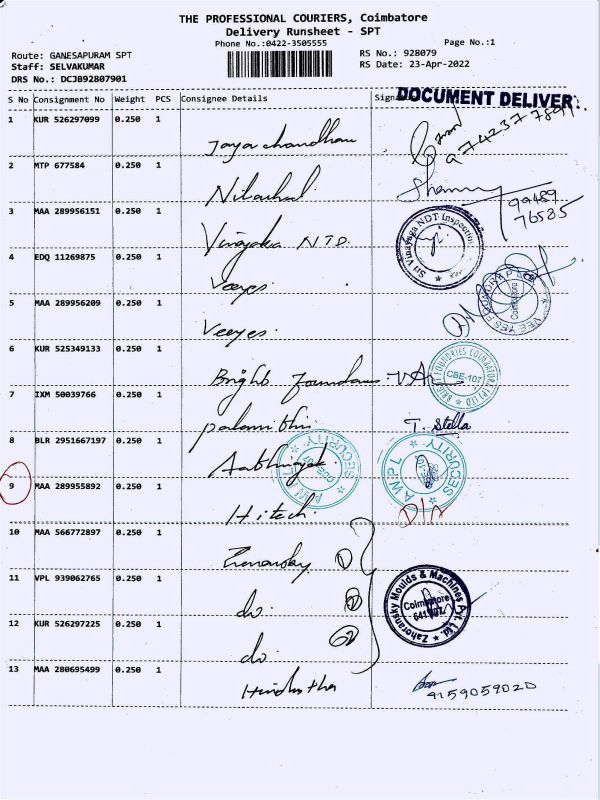 THE PROFESSIONAL COURIERS, Coimbatore
Delivery Runsheet - SPT
Phone No.:0422-3505555
Page No.:1
Route: GANESAPURAM SPT
RS No.: 928079
Staff: SELVAKUMAR
RS Date: 23-Apr-2022
DRS No.: DCJB92807901
S No Consignment No Weight PCS Consignee Details
DOCUMENT DELIVER
1 KUR 526297099 0.250 1 Jaya chandhan
2 MTP 677584 0.250 1
99489
76535
3 MAA 289956151 0.250 1 Vinayaka NTD.
Sri Vinayaga NDT Inspection
4 EDQ 11269875 0.250 1 Veeyes
Coimbatore
5 MAA 289956209 0.250 1 Veeyes.
6 KUR 525349133 0.250 1
BRIGHT FOUNDRIES COIMBATORE (P) LTD
CBE-107
7 IXM 50039766 0.250 1
T. Stella
8 BLR 2951667197 0.250 1
AWPL SECURITY
AWPL SECURITY
9 MAA 289955892 0.250 1 Hitech.
D/A
10 MAA 566772897 0.250 1
11 VPL 939062765 0.250 1 do.
Zahoransky Moulds & Machines Pvt. Ltd.
Coimbatore
641 107
12 KUR 526297225 0.250 1 do
13 MAA 280695499 0.250 1
9159059020